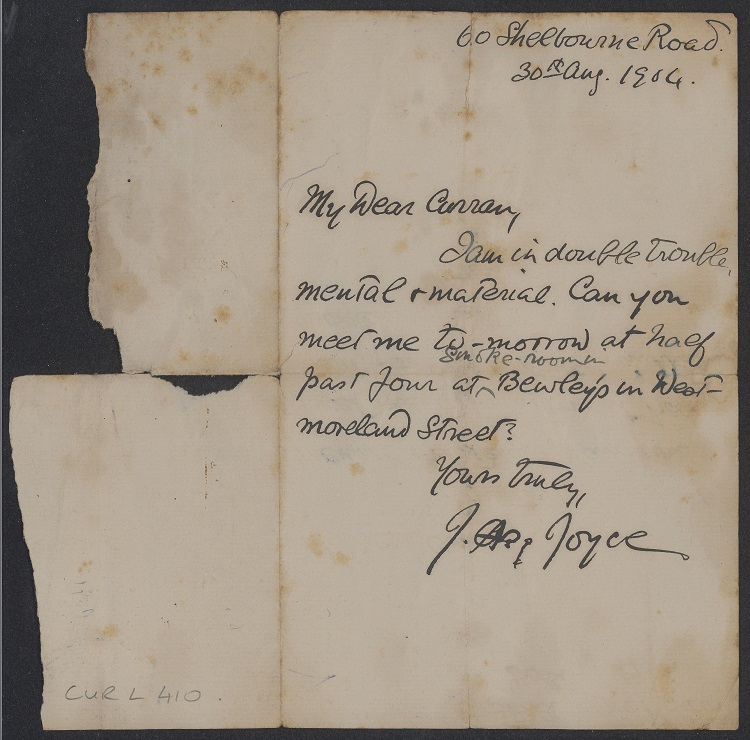 60 Shelbourne Road.
30th Aug. 1904.
My Dear Curran,
I am in double trouble,
mental & material. Can you
meet me to-morrow at half
smoke-room in
past four at ^ Bewley's in West-
moreland Street?
Yours truly,
J. Joyce
CUR L 410.